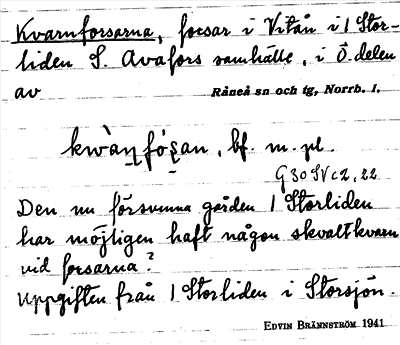 Kvarnforsarna, forsar i Vitån i 1 Stor-
liden S. Avafors samhälle, i Ö. delen
av Råneå sn och tg, Norrb. l.
kwàṇfó̀ṣan, bf. m. pl.
G 30 SV c 2, 22
Den nu försvunna gården 1 Storliden
har möjligen haft någon skvaltkvarn
vid forsarna?
Uppgiften från 1 Storliden i Storsjön.
EDVIN BRÄNNSTRÖM 1941